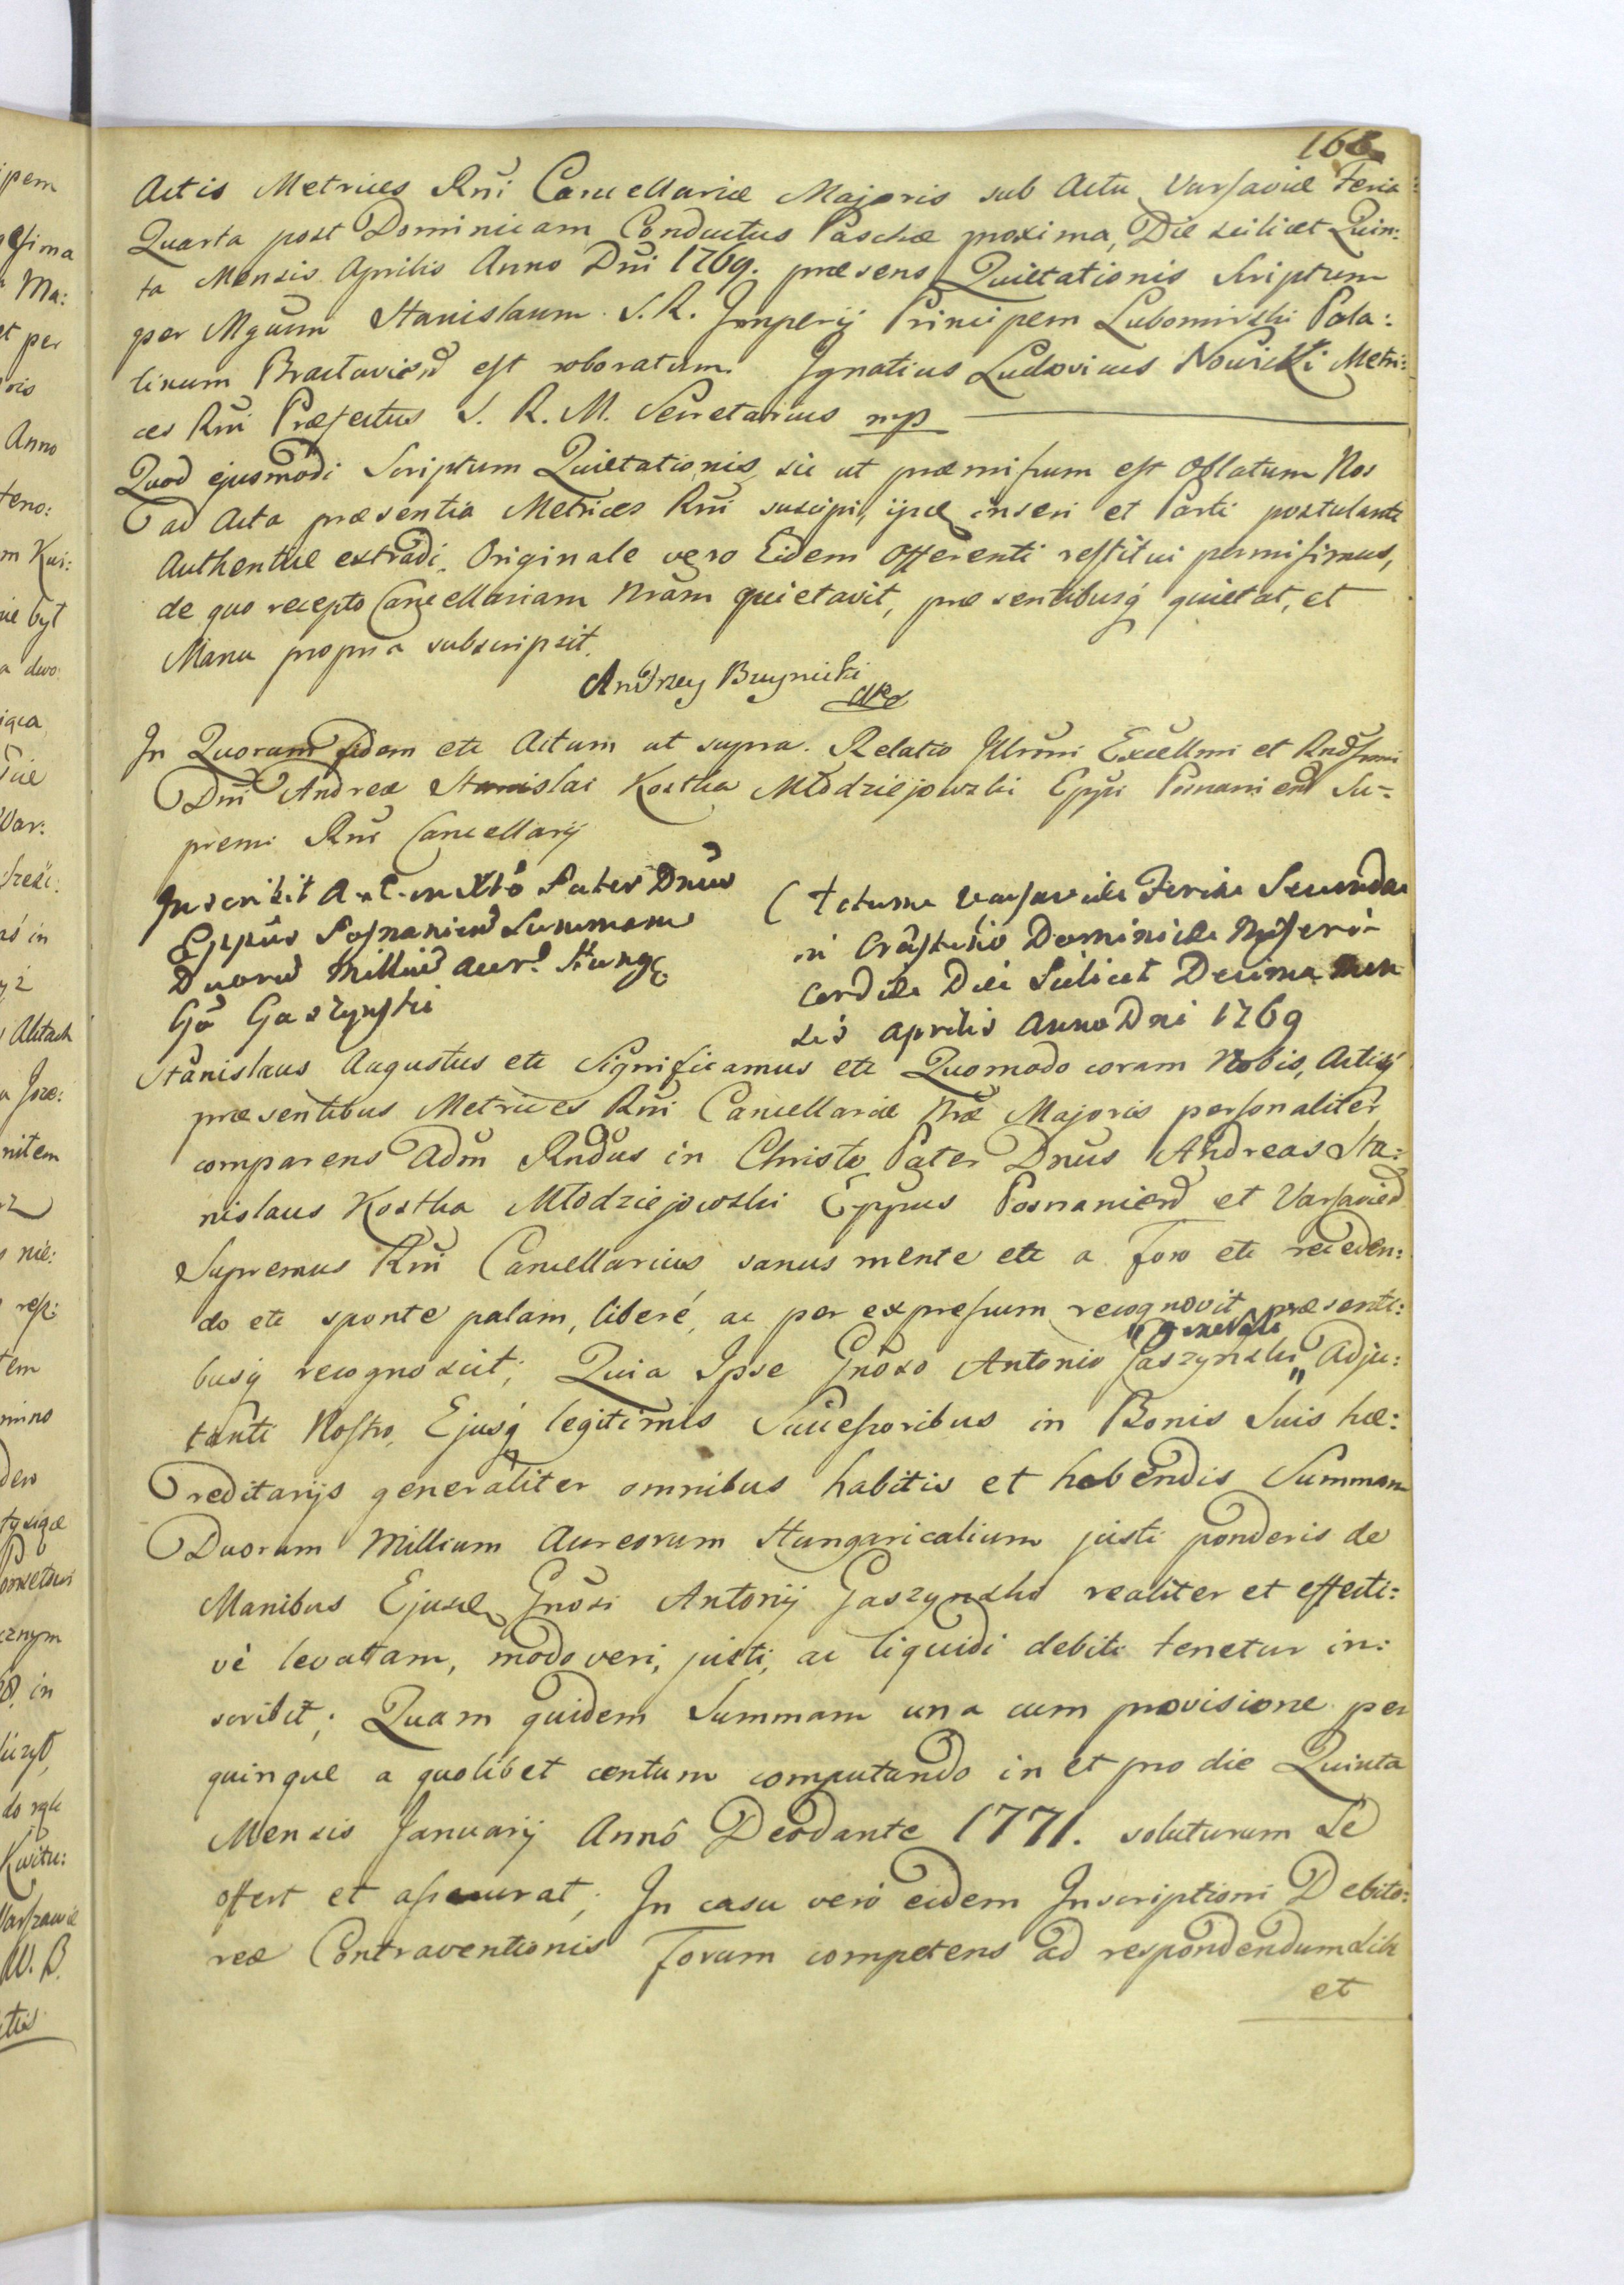 168
Actis Metrices Rni Cancellariæ Majoris sub Actu Varsaviæ Feria
Quarta post Dominicam Conductus Paschæ proxima, Die scilicet Quin:
ta Mensis Aprilis Anno Dni 1769. præsens Quietationis Scriptum
per Mgcum Stanislaum S. R. Imperij Principem Lubomirski Pala:
tinum Braclavien est roboratum. Ignatius Ludovicus Nowicki Metri:
ces Rni Præfectus S. R. M. Secretarius mp
Quod ejusmodi Scriptum Quietationis sic ut præmissum est oblatum Nos
ad Acta præsentia Metrices Rni suscipi, ijsq inseri et Parti postulanti
Authentice extradi. Originale vero Eidem Offerenti restitui permisimus,
de quo recepto Cancellariam Nram quietavit, præsentibusq quietat, et
Manu propria subscripsit.
Andrzey
In Quorum fidem etc Actum ut supra. Relatio Illrmi Excellmi et Rndssmi
Dni Andreæ Stanislai Kostka Młodziejowski Eppi Posnanien Su-
premi Rni Cancellarij
Inscribit in Xto Pater Dnus
Eppus Posnanien Summam
Duoru Milliu Aur. Hung
Go Gaszynski
Actum Varsaviæ Feria Secunda
in Crastino Dominicæ Miseri-
cordiæ Dei Scilicet Decima Men
sis Aprilis Anno Dni 1769
Stanislaus Augustus etc Significamus etc Quomodo coram Nobis, Actisq
præsentibus Metrices Rni Cancellariæ Nræ Majoris personaliter
comparens Adm Rndus in Christo Pater Dnus Andreas Sta:
nislaus Kostka Młodziejowski Eppus Posnanien et Varsavien
Supremus Rni Cancellarius, sanus mente etc a Foro etc receden:
do etc sponte palam, liberé, ac per expressum recognovit præsenti:
busq recognoscit; Quia Ipse Gnoso Antonio Gaszynski "generali" Adju:
tanti Nostro, Ejusq legitimis Successoribus in Bonis Suis hæ:
reditarijs generaliter omnibus habitis et habendis Summam
Duorum Millium Aureorum Hungaricalium justi ponderis de
Manibus Ejusd Gnosi Antonij Gaszynski realiter et effecti:
vè levatam, modo veri, justi, ac liquidi debiti tenetur in:
scribit; Quam quidem Summam una cum provisione per
quinque a quolibet centum computando in et pro die Quinta
Mensis Januarij Annô Deodante 1771. soluturum Se
offert et assecurat; In casu verò eidem Inscriptioni Debito:
reæ Contraventionis Forum competens ad respondendum sibi
et